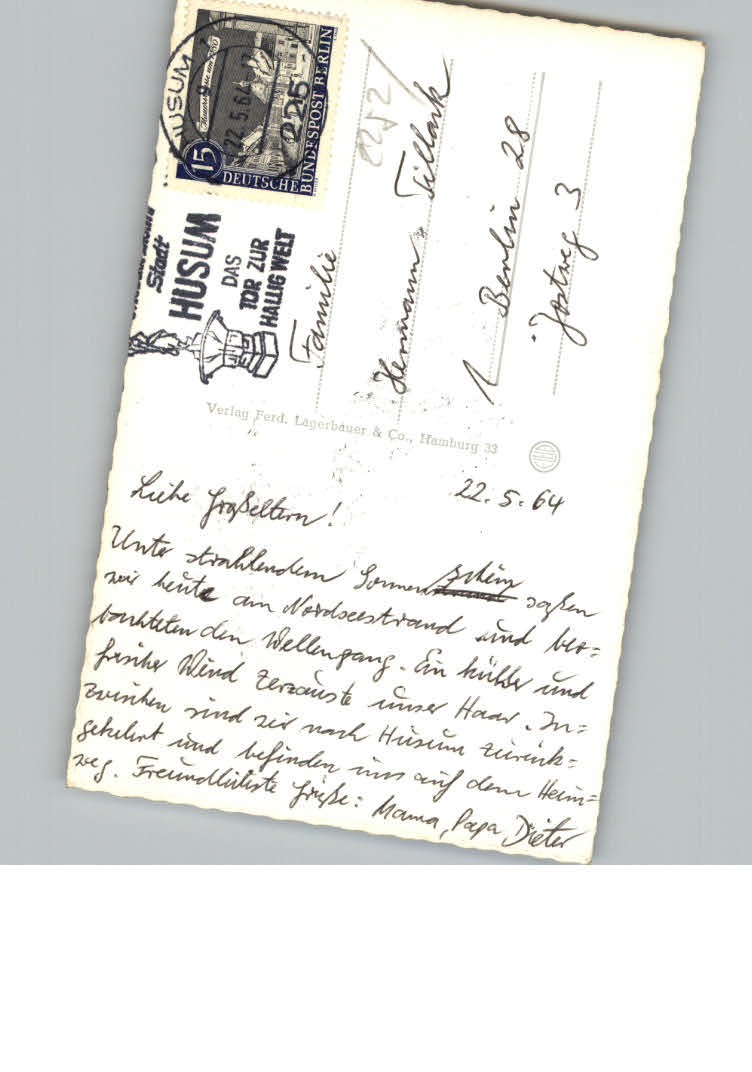 HUSUM
22.5.64
9
225
15
DEUTSCHE
BUNDESPOST BERLIN
Stadt
HUSUM
DAS
TOR ZUR
HALLIG WELT
2252/
Familie
Hermann Tillack
1 Berlin 28
Jostweg 3
Verlag Ferd. Lagerbauer & Co., Hamburg 33
22. 5. 64
Liebe Großeltern!
Unter strahlendem Sonnenschein saßen
wir heute am Nordseestrand und beo=
bachteten den Wellengang. Ein kühler und
frischer Wind zerzauste unser Haar. In=
zwischen sind wir nach Husum zurück=
gekehrt und befinden uns auf dem Heim=
weg. Freundlichste Grüße: Mama, Papa Dieter